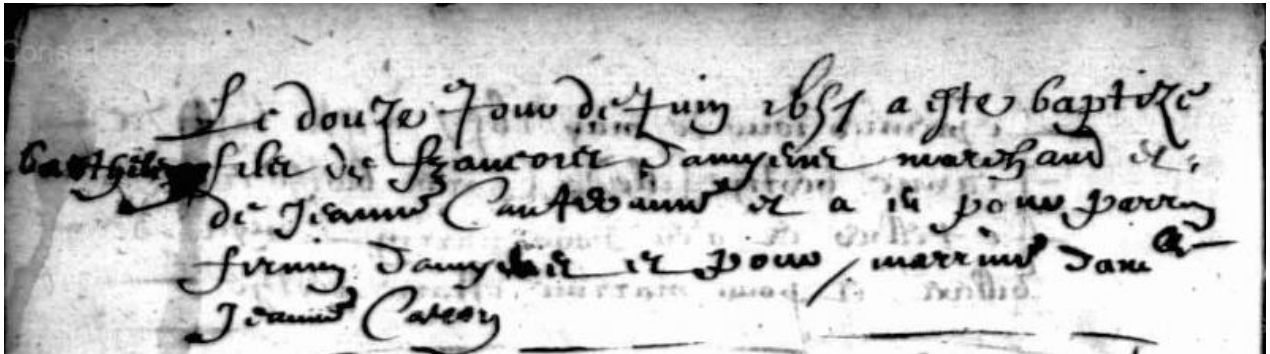 Le douze Jour de Juin 1651 a este baptize
barthelemy filz de francois damyens marchand et
de Jeanne et a eu pour parrin
firmin damyens et pour marrine dame
Jeanne